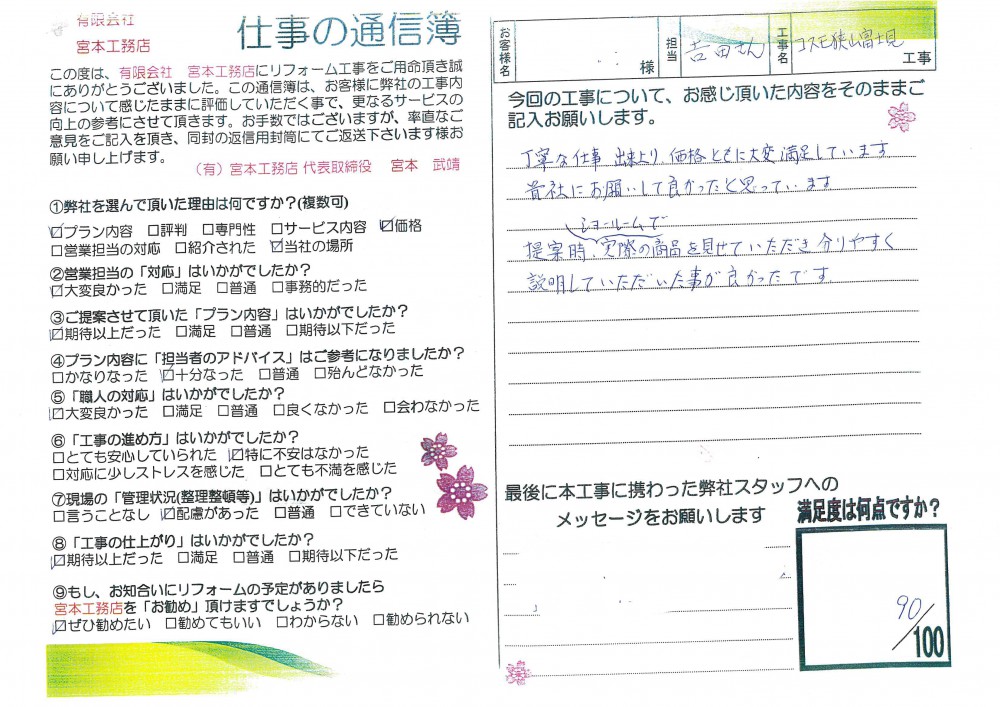 有限会社
宮本工務店
仕事の通信簿
この度は、有限会社 宮本工務店にリフォーム工事をご用命頂き誠
にありがとうございました。この通信簿は、お客様に弊社の工事内
容について感じたままに評価していただく事で、更なるサービスの
向上の参考にさせて頂きます。お手数ではございますが、率直なご
意見をご記入を頂き、同封の返信用封筒にてご返送下さいます様お
願い申し上げます。
(有)宮本工務店 代表取締役 宮本 武靖
①弊社を選んで頂いた理由は何ですか?(複数可)
☑プラン内容 □評判 □専門性 □サービス内容 ☑価格
□営業担当の対応 □紹介された ☑当社の場所
②営業担当の「対応」はいかがでしたか?
☑大変良かった □満足 □普通 □事務的だった
③ご提案させて頂いた「プラン内容」はいかがでしたか?
☑期待以上だった □満足 □普通 □期待以下だった
④プラン内容に「担当者のアドバイス」はご参考になりましたか?
□かなりなった ☑十分なった □普通 □殆んどなかった
⑤「職人の対応」はいかがでしたか?
☑大変良かった □満足 □普通 □良くなかった □会わなかった
⑥「工事の進め方」はいかがでしたか?
□とても安心していられた ☑特に不安はなかった
□対応に少しストレスを感じた □とても不満を感じた
⑦現場の「管理状況(整理整頓等)」はいかがでしたか?
□言うことなし ☑配慮があった □普通 □できていない
⑧「工事の仕上がり」はいかがでしたか?
☑期待以上だった □満足 □普通 □期待以下だった
⑨もし、お知合いにリフォームの予定がありましたら
宮本工務店を「お勧め」頂けますでしょうか?
☑ぜひ勧めたい □勧めてもいい □わからない □勧められない
お客様名 様 担当 吉田さん 工事名 コスモ狭山富士見 工事
今回の工事について、お感じ頂いた内容をそのままご
記入お願いします。
丁寧な仕事 出来上り 価格ともに大変満足しています
貴社にお願いして良かったと思っています
ショールームで
提案時、実際の商品を見せていただき分りやすく
説明していただいた事が良かったです。
最後に本工事に携わった弊社スタッフへの
メッセージをお願いします
満足度は何点ですか?
90/100